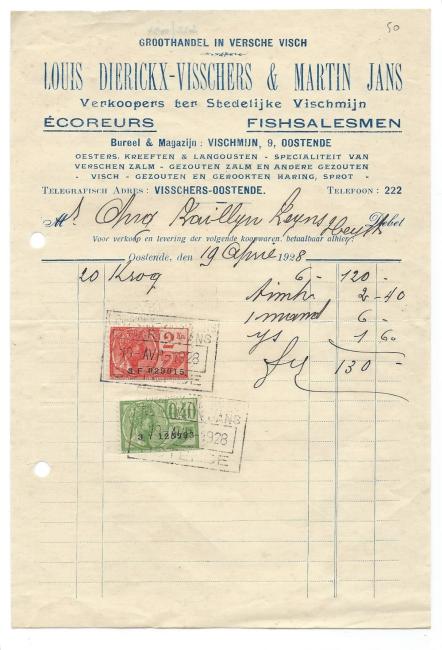 50
GROOTHANDEL IN VERSCHE VISCH
LOUIS DIERICKX-VISSCHERS & MARTIN JANS
Verkoopers ter Stedelijke Vischmijn
ÉCOREURS FISHSALESMEN
Bureel & Magazijn : VISCHMIJN, 9, OOSTENDE
OESTERS, KREEFTEN & LANGOUSTEN - SPECIALITEIT VAN
VERSCHEN ZALM - GEZOUTEN ZALM EN ANDERE GEZOUTEN
- VISCH - GEZOUTEN EN GEROOKTEN HARING, SPROT -
TELEGRAFISCH ADRES : VISSCHERS-OOSTENDE. TELEFOON : 222
Debet
Voor verkoop en levering der volgende koopwaren, betaalbaar alhier.
Oostende, den 19 April 1928
20 6 - 120 -
timb 2 - 40
1 mand 6 -
ys 1 60
fr 130 -
2
1928
0,40
1928